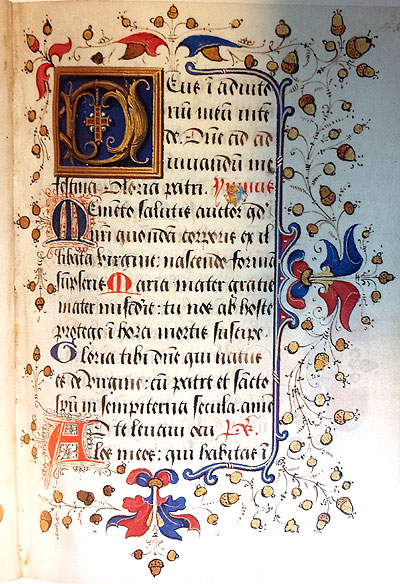 DEus ī adiuto
riū meū inte
de. Dñe ad ad
iuuandum me
festina Gloria patri. Ymnus
Memēto salutis auctor qd
nr̄i quondā corporis ex il
libata virgine: nascendo formā
sūpseris Maria mater gratie
mater mīsdie: tu nos ab hoste
protege ī hora mortis suscipe.
Gloria tibi dñe qui natus
es de virgine: cū patre et sācto
spū in sempiterna secula. amē
Ad te leuaui ocu Ps.
los meos: qui habitas ī